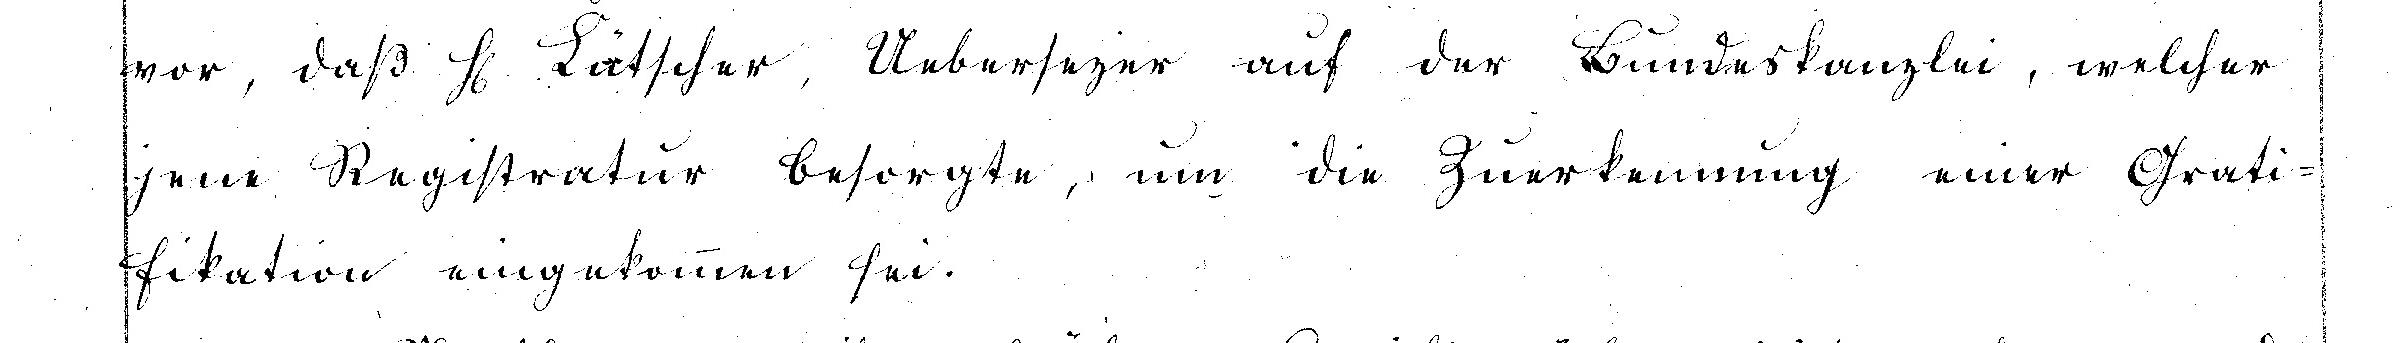 vor, daß H. Lätscher, Uebersezer auf der Bundeskanzlei, welcher
jene Registratur besorgte, um die Zuerkennung einer Grati-
fikation eingekom̅en sei.